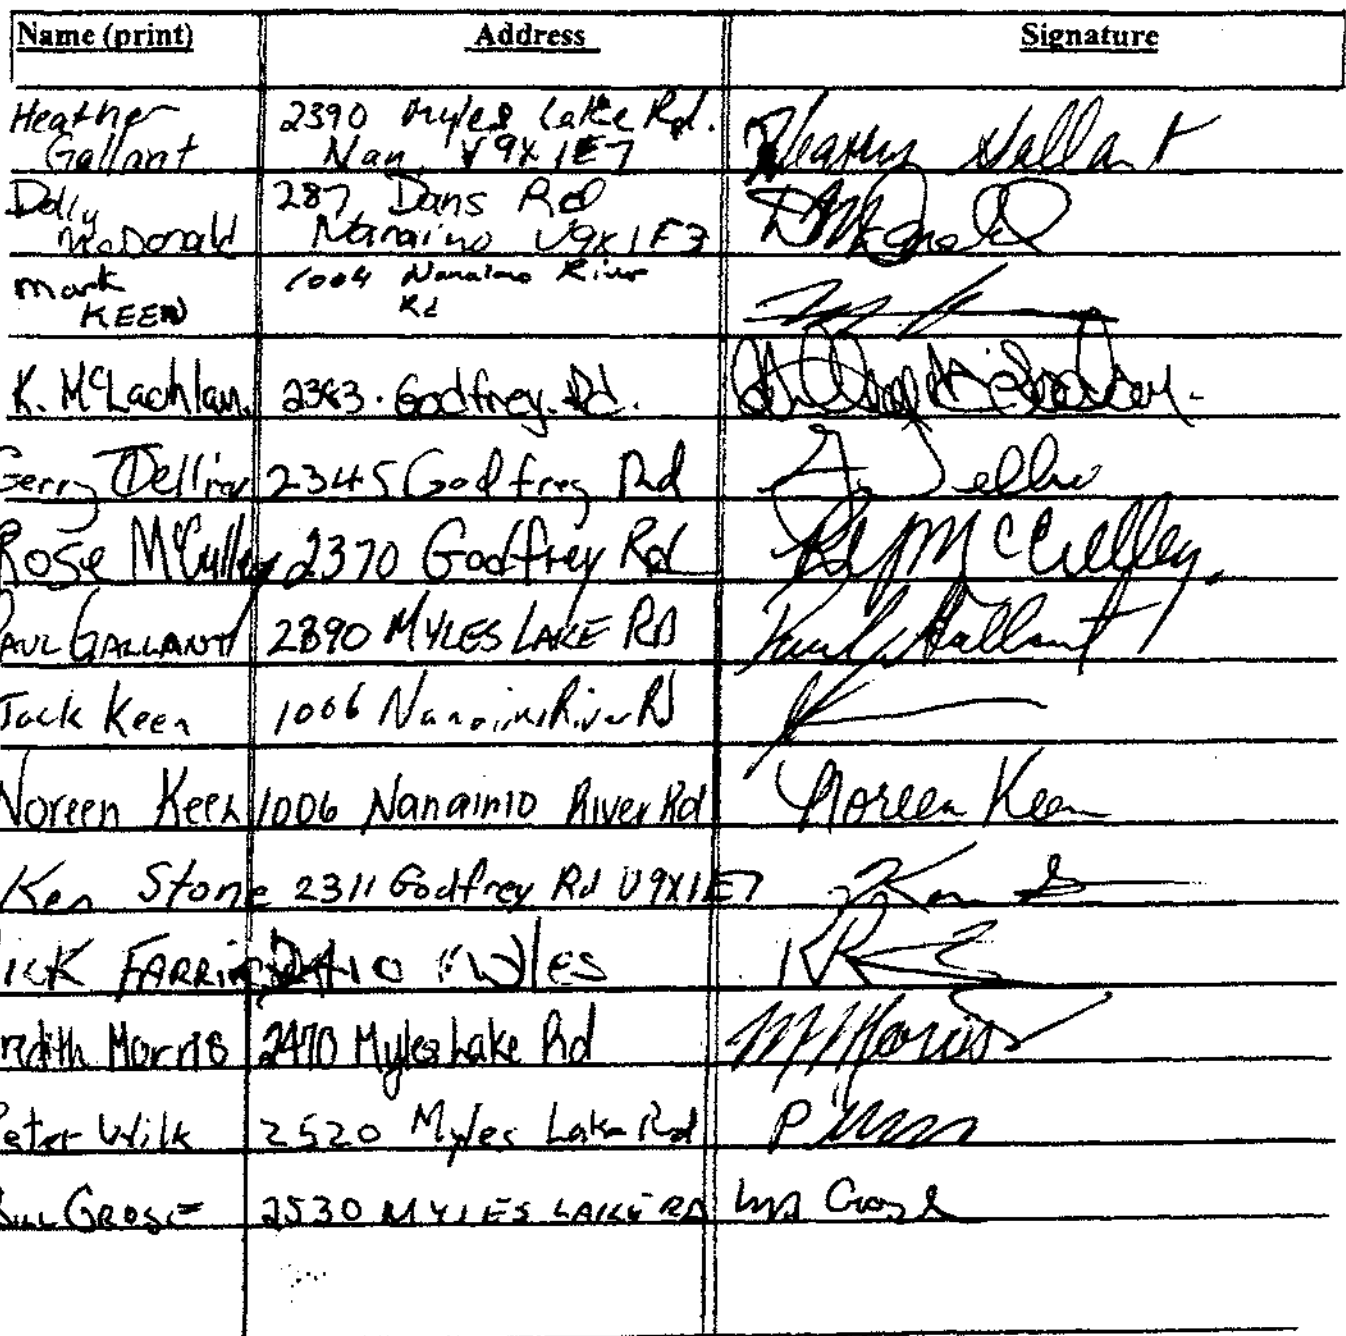 Name (print) Address Signature
Heather 2390 Myles Lake Rd.
Gallant Nan V9X 1E7 Heather Gallant
Dolly 287 Dans Rd
McDonald Nanaimo V9X 1F3 D McDonald
Mark 1004 Nanaimo River
KEEN Rd
K. McLachlan. 2383. Godfrey. Rd.
Gerry Tellier 2345 Godfrey Rd G Tellier
Rose McCulley 2370 Godfrey Rd R McCulley.
PAUL GALLANT 2390 MYLES LAKE RD Paul Gallant
Jack Keen 1006 Nanaimo River Rd
Noreen Keen 1006 Nanaimo River Rd Noreen Keen
Ken Stone 2311 Godfrey Rd V9X1E7 Ken S
ick FARRI 2410 Myles
redith Morris 2470 Myles Lake Rd M Morris
Peter Wilk 2520 Myles Lake Rd
BILL GROSE 2530 MYLES LAKE RD Wm Grose